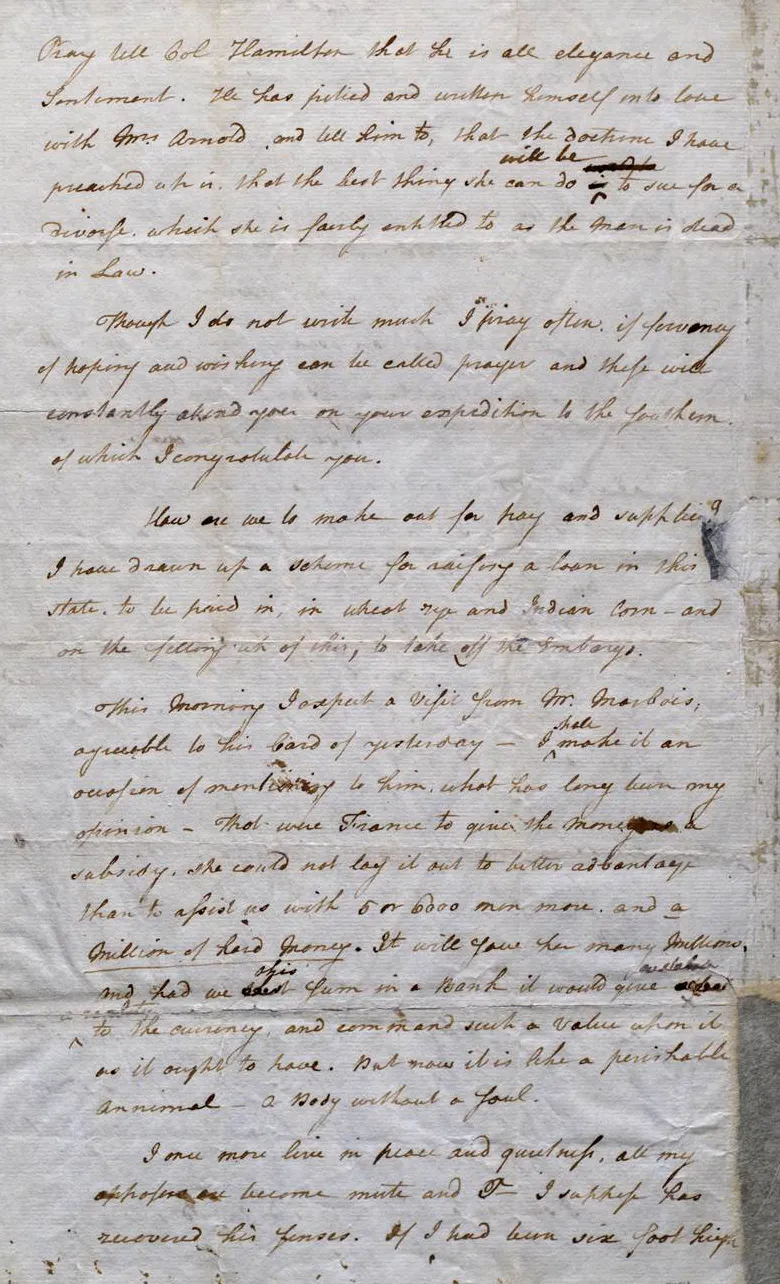 Pray tell Col Hamilton that he is all elegance and
Sentiment. He has pitied and written himself into love
with Mrs Arnold, and tell him to, that the doctrine I have
will be
preached up is, that the best thing she can do to sue for a
divorse. which she is fairly entitled to as the man is dead
in Law.
Though I do not write much I pray often. if fervency
of hoping and wishing can be called prayer and these will
constantly attend you on your expedition to the Southern.
of which I congratulate you.
How are we to make out for pay and supplies?
I have drawn up a scheme for raising a loan in this
state. to be paid in, in wheat rye and Indian Corn – and
on the filling up of this, to take off the Embargo.
This Morning I expect a Visit from Mr. Marbois,
shall
agreeable to his Card of yesterday – I make it an
occasion of mentioning to him, what has long been my
opinion – That were France to give the money as a
subsidy. she could not lay it out to better advantage
than to assist us with 5 or 6000 men more. and a
Million of hard Money. It will save her many Millions.
this
and had we Sum in a Bank it would give
to the currency, and command such a Value upon it
as it ought to have. But now it is like a perishable
Annimal – a Body without a Soul.
I once more live in peace and quietness, all my
opposers are become mute and T– I suppose has
recovered his senses. If I had been six foot high